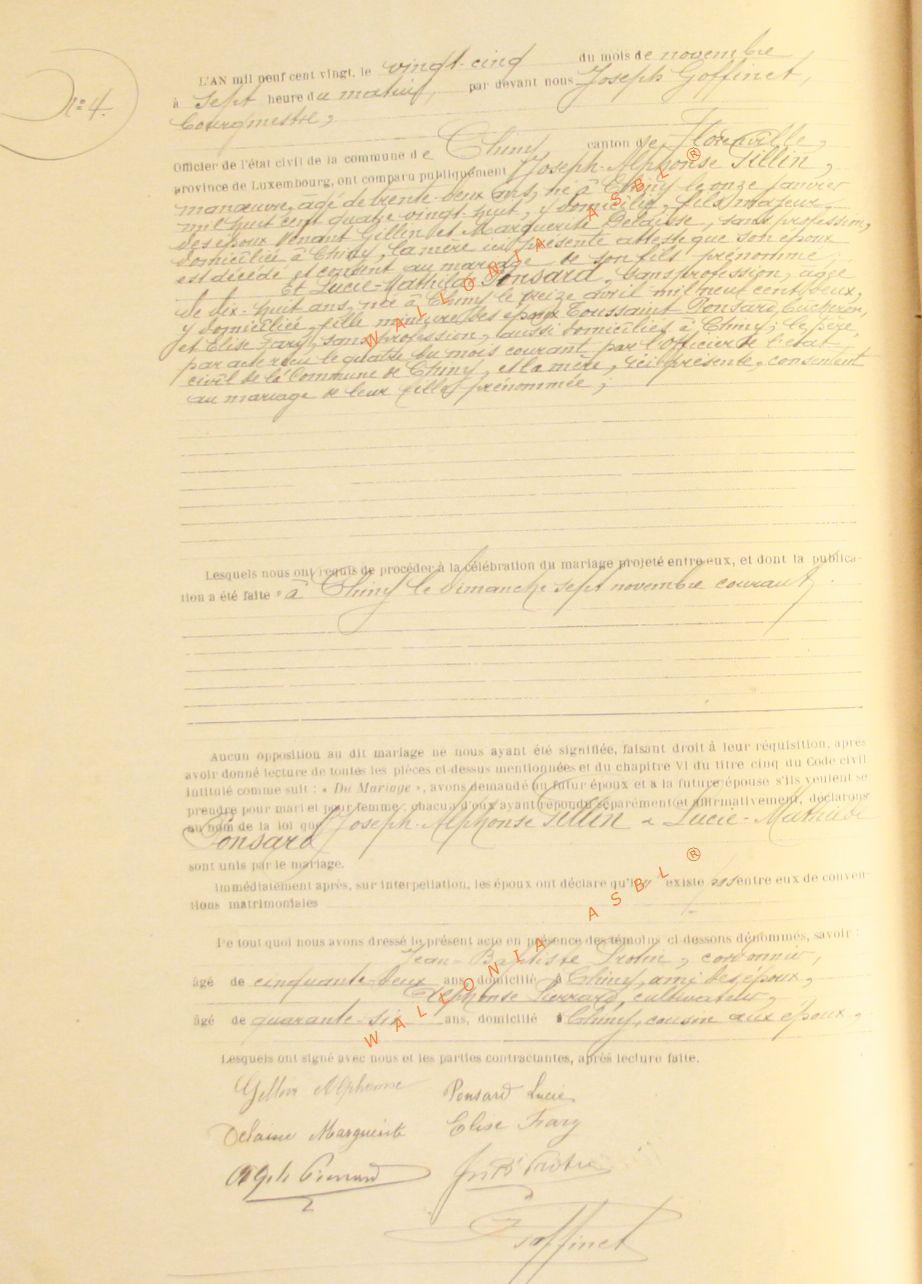 N° 4.
L'AN mil neuf cent vingt, le vingt-cinq du mois de novembre
à sept heure du matin, par devant nous Joseph Goffinet,
bourgmestre,
Officier de l'état civil de la commune de Chiny canton de Florenville,
province de Luxembourg, ont comparu publiquement Joseph-Alphonse Gillin,
manœuvre, âgé de trente-deux ans, né à Chiny le onze janvier
mil huit cent quatre vingt-huit, y domicilié, fils majeur
des époux Venant Gillin et Marguerite Delaisse, sans profession,
domiciliée à Chiny, la mère ici présente atteste que son époux
est décédé et consent au mariage de son fils prénommé;
Et Lucie-Mathilde Ponsard, sans profession, agée
de dix-huit ans, née à Chiny le treize avril mil neuf cent deux,
y domiciliée, fille mineure des époux Toussaint Ponsard, bûcheron,
et Elise Fary, sans profession, aussi domiciliés à Chiny; le père,
par acte reçu le quatre du mois courant par l'Officier de l'état
civil de la Commune de Chiny, et la mère, ici présente, consentent
au mariage de leur fille prénommée;
Lesquels nous ont requis de procéder à la célébration du mariage projeté entre eux, et dont la publica-
tion a été faite à Chiny le dimanche sept novembre courant.
Aucun opposition au dit mariage ne nous ayant été signifiée, faisant droit à leur réquisition, après
avoir donné lecture de toutes les pièces ci-dessus mentionnées et du chapitre VI du titre cinq du Code civil
intitulé comme suit : « Du Mariage », avons demandé au futur époux et a la future épouse s'ils veulent se
prendre pour mari et pour femme : chacun d'eux ayant répondu séparément et affirmativement, déclarons
au nom de la loi que Joseph-Alphonse Gillin & Lucie-Mathilde
Ponsard
sont unis par le mariage.
Immédiatement après, sur interpellation, les époux ont déclare qu'il existe pas entre eux de conven-
tions matrimoniales
De tout quoi nous avons dressé le présent acte en présence des témoins ci-dessous dénommés, savoir :
Jean-Baptiste cordonnier,
âgé de cinquante-deux ans, domicilié à Chiny, ami des époux,
Alphonse Pierrard, cultivateur,
âgé de quarante-six ans, domicilié à Chiny, cousin aux époux,
Lesquels ont signé avec nous et les parties contractantes, après lecture faite.
Gillin Alphonse Ponsard Lucie
Delaisse Marguerite Elise Fary
Pierrard
Goffinet
WALLONIA ASBL ®
WALLONIA ASBL ®